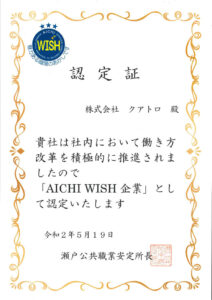 AICHI
WISH
認定証
株式会社 クアトロ 殿
貴社は社内において働き方
改革を積極的に推進されま
したので
「AICHI WISH 企業」とし
て認定いたします
令和2年5月19日
瀬戸公共職業安定所長